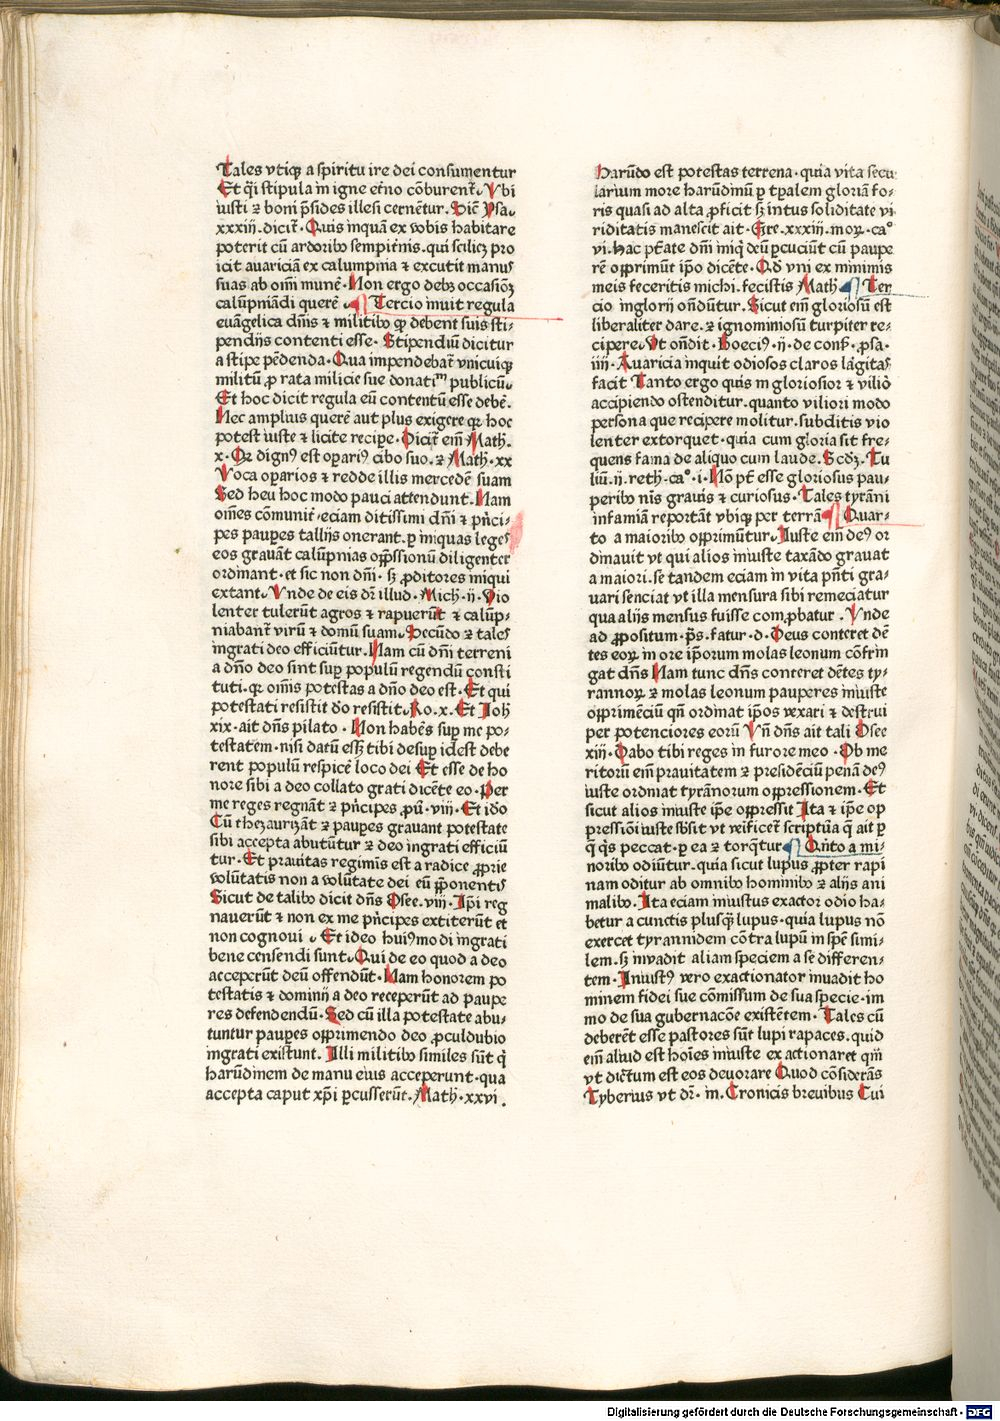 Tales vtiqꝫ a spiritu ire dei consumentur
Et q̄i stipula in igne et̄no cōburent᷑. Vbi
iusti ⁊ boni p̄sides illesi cernētur. Dic̄ Psa.
xxxiij. dicit᷑. Quis inquā ex vobis habitare
poterit cū ardoribꝰ sempit̄nis. qui scilicꝫ pro
icit auariciā ex calumpnia ⁊ excutit manus
suas ab om̄i munē. Non ergo debꝫ occasiōꝫ
calūpniādi querē. Tercio īnuit regula
euāgelica dn̄is ⁊ militibꝰ ꝙ debent suis sti⸗
pendijs contenti esse. Stipendiū dicitur
a stipe pēdenda. Qua impendebat᷑ vnicuiqꝫ
militū ꝓ rata milicie sue donatiᵐ publicū.
Et hoc dicit regula eū contentū esse debē.
Nec amplius querē aut plus exigere qꝛ hoc
potest iuste ⁊ licite recipe. Dicit᷑ em̄ Math.
x. Qꝛ dignꝰ est oꝑariꝰ cibo suo. ⁊ Math. xx
Voca oꝑarios ⁊ redde illis mercedē suam
Sed heu hoc modo pauci attendunt. Nam
om̄es cōmunit᷑ eciam ditissimi dn̄i ⁊ pn̄ci⸗
pes pauꝑes tallijs onerant. ꝑ iniquas leges
eos grauāt calūpnias oꝓssionū diligenter
ordinant. et sic non dn̄i. sꝫ ꝓditores iniqui
extant. Vnde de eis dr̄ illud. Mich. ij. Vio
lenter tulerūt agros ⁊ rapuerūt ⁊ calūp⸗
niabant᷑ virū ⁊ domū suam. Secūdo ⁊ tales
ingrati deo efficiūtur. Nam cū dn̄i terreni
a dn̄o deo sint suꝑ populū regendū consti
tuti. qꝛ om̄is potestas a dn̄o deo est. Et qui
potestati resistit do resistit. Ro. x. Et Joh̄
xix. ait dn̄s pilato. Non habēs suꝑ me po⸗
testatem. nisi datū essꝫ tibi desuꝑ idest debe
rent populū respicē loco dei Et esse de ho
nore sibi a deo collato grati dicēte eo. Per
me reges regnāt ⁊ pn̄cipes. ꝓū. viij. Et ido
Cū thezaurizāt ⁊ pauꝑes grauant potestate
sibi accepta abutūtur ⁊ deo ingrati efficiū
tur. Et prauitas regimīs est a radice ꝓprie
volūtatis non a volūtate dei eū p̄ponentis
Sicut de talibꝰ dicit dn̄s Osee. viij. Ip̄i reg
nauerūt ⁊ non ex me pn̄cipes extiterūt et
non cognoui. Et ideo huiꝰmodi ingrati
bene censendi sunt. Qui de eo quod a deo
acceperūt deū offendūt. Nam honorem po
testatis ⁊ dominij a deo receperūt ad paupe
res defendendū. Sed cū illa potestate abu⸗
tuntur pauꝑes oppꝛimendo deo ꝓculdubio
ingrati existunt. Illi militibꝰ similes sūt q̄
harūdinem de manu eius acceperunt. qua
accepta caput xp̄i ꝑcusserūt. Math. xxvi.
harūdo est potestas terrena. quia vita secu
larium more harūdinū ꝑ tp̄alem gloriā fo⸗
ris quasi ad alta ꝓficit sꝫ intus soliditate vi
riditatis manescit ait. Gre. xxxiij. moꝝ. caᵒ
vi. hac pt̄ate dn̄i iniq̄ deū ꝑcuciūt cū paupe
rē opprimūt ip̄o dicēte. Qd̄ vni ex minimis
meis feceritis michi. fecistis Math. Ter
cio inglorij on̄dūtur. Sicut em̄ gloriosū est
liberaliter dare. ⁊ ignominiosū turpiter re⸗
cipere. Vt on̄dit. Boeciꝰ. ij. de cons̄. ꝓsa.
iiij. Auaricia inquit odiosos claros lāgitas
facit Tanto ergo quis in gloriosior ⁊ viliꝰ
accipiendo ostenditur. quanto viliori modo
persona que recipere molitur. subditis vio
lenter extorquet. quia cum gloria sit fre⸗
quens fama de aliquo cum laude. Scd̄ꝫ. Tu
liū. ij. reth. caᵒ. i. Nō pt̄ esse gloriosus pau⸗
peribꝰ nīs grauis ⁊ curiosus. Tales tyrāni
infamiā reportāt vbiqꝫ per terrā Quar⸗
to a maioribꝰ oppꝛimūtur. Iuste ein deꝰ or
dinauit vt qui alios iniuste taxādo grauat
a maiori. se tandem eciam in vita pn̄ti gra⸗
uari senciat vt illa mensura sibi remeciatur
qua alijs mensus fuisse comꝓbatur. Vnde
ad ꝓpositum. p̄s. fatur. d. Deus conteret dē
tes eoꝝ in ore ip̄orum molas leonum cōfrin
gat dn̄s Nam tunc dn̄s conteret dētes ty⸗
rannoꝝ ⁊ molas leonum pauperes iniuste
oppꝛimēciū qn̄ ordinat ip̄os vexari ⁊ destrui
per potenciores eorū Vn̄ dn̄s ait tali Osee
xiij. Dabo tibi reges in furore meo. Ob me
ritorū em̄ prauitatem ⁊ presidēciū penā deꝰ
iuste ordinat tyrānorum oppꝛessionem. Et
sicut alios iniuste ip̄e oppꝛessit Ita ⁊ ip̄e op
pressiōi iuste sb̄sit vt veīficet᷑ scriptūa q̄ ait ꝑ
q̄ q̄s peccat. ꝑ ea ⁊ torq̄tur Qn̄to a mi⸗
noribꝰ odiūtur. quia sicut lupus ꝓpter rapi
nam oditur ab omnibꝰ hominibꝰ ⁊ alijs ani
malibꝰ. Ita eciam iniustus exactor odio ha⸗
betur a cunctis plusq̄ lupus. quia lupus nō
exercet tyrannidem cōtra lupū in sp̄e simi⸗
lem. sꝫ inuadit aliam speciem a se differen⸗
tem. Iniustꝰ vero exactionator inuadit ho
minem fidei sue cōmissum de sua specie. im
mo de sua gubernacōe existētem. Tales cū
deberēt esse pastores sūt lupi rapaces. quid
em̄ aliud est hoīes iniuste exactionaret qm̄
vt dictum est eos deuorare Quod cōsiderās
Tyberius vt dr̄. in. Cronicis breuibus Cui
Digitalisierung gefördert durch die Deutsche Forschungsgemeinschaft - DFG